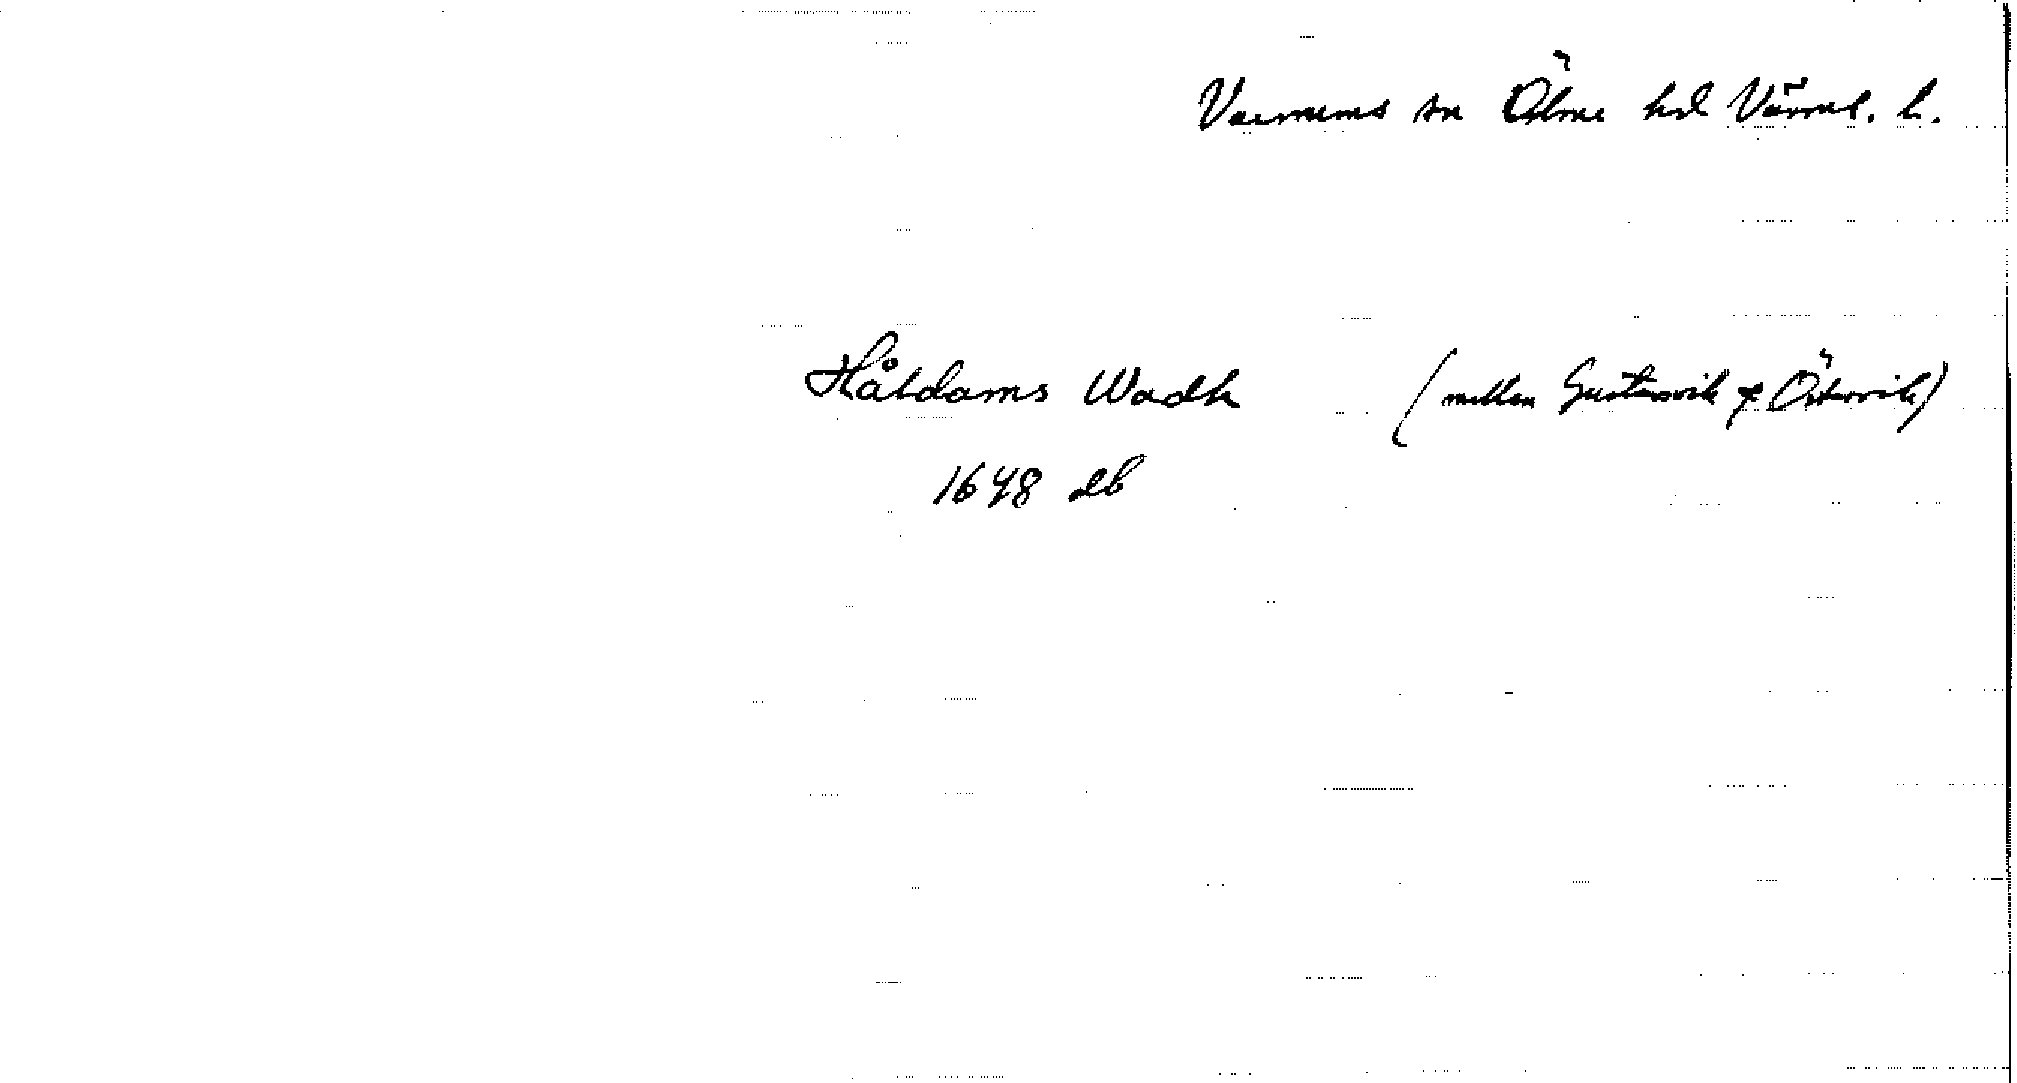 Varnums sn Ölme hd Värml. l.
Håldams Wadh (mellan Gustavsvik & Östervik)
1648 db